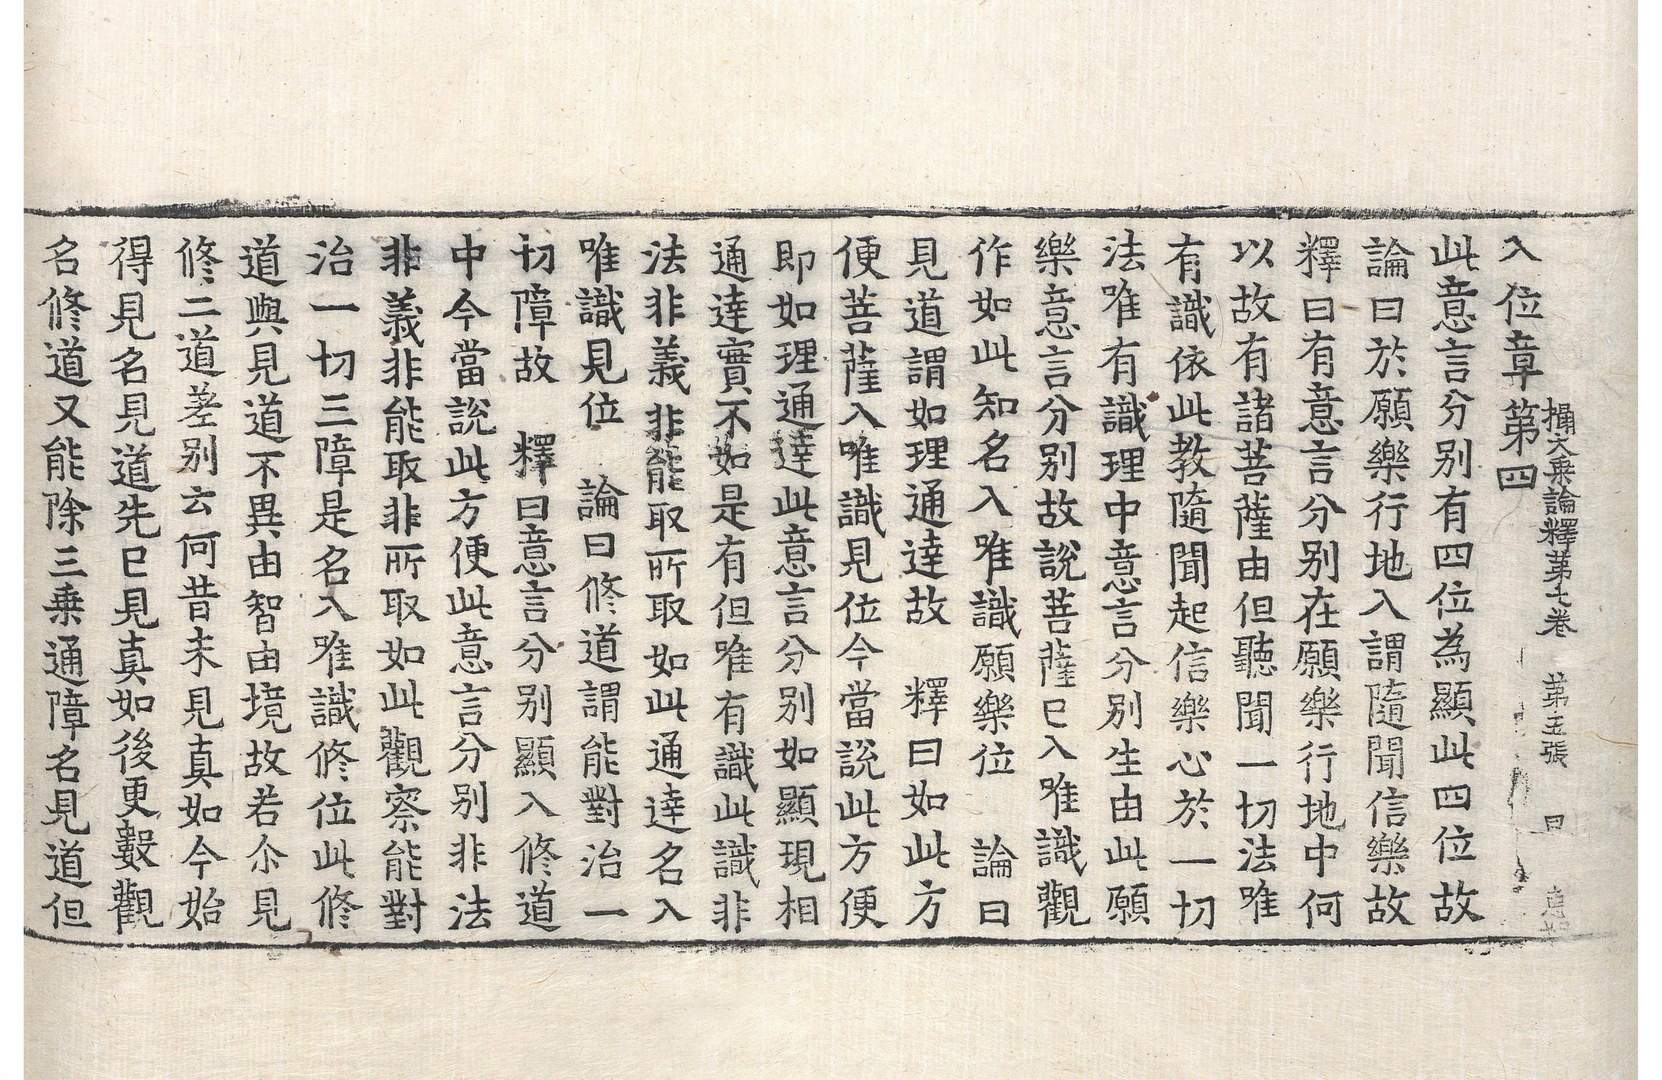 攝大乘論釋第七卷 第五張 
入位章第四
此意言分別有四位為顯此四位故
論曰於願樂行地入謂隨聞信樂故
釋曰有意言分別在願樂行地中何
以故有諸菩薩由但聽聞一切法唯
有識依此教隨聞起信樂心於一切
法唯有識理中意言分別生由此願
樂意言分別故說菩薩已入唯識觀
作如此知名入唯識願樂位 論曰
見道謂如理通達故 釋曰如此方
便菩薩入唯識見位今當說此方便
即如理通達此意言分別如顯現相
通達實不如是有但唯有識此識非
法非義非能取所取如此通達名入
唯識見位 論曰修道謂能對治一
切障故 釋曰意言分別顯入修道
中今當說此方便此意言分別非法
非義非能取非所取如此觀察能對
治一切三障是名入唯識修位此修
道與見道不異由智由境故若尒見
修二道差別云何昔未見真如今始
得見名見道先已見真如後更數觀
名修道又能除三乗通障名見道但